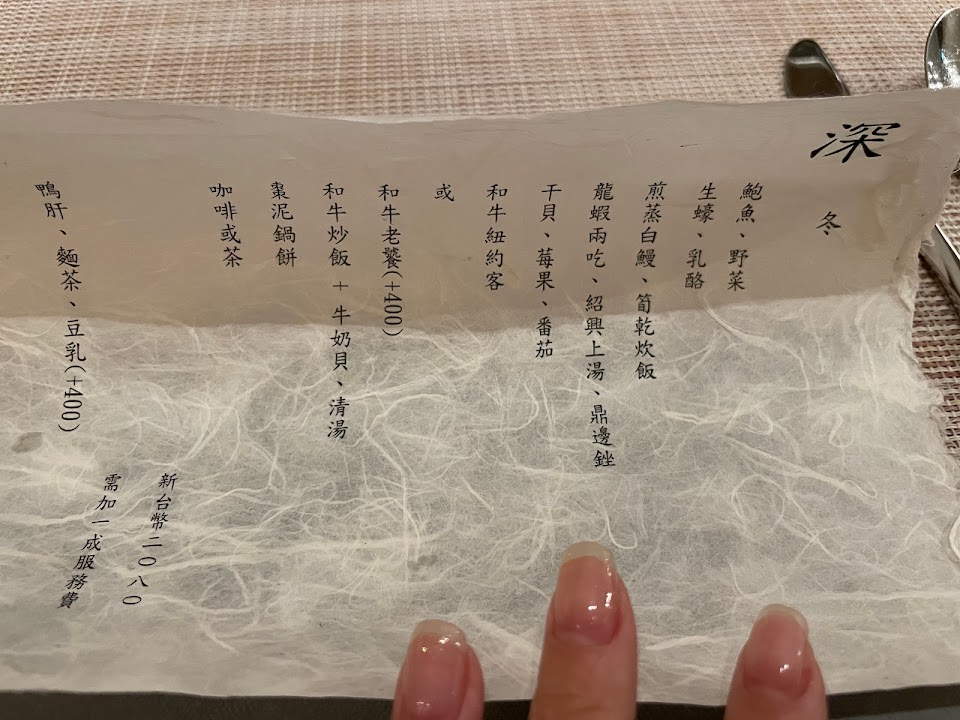 深
冬
鮑魚、野菜
生蠔、乳酪
煎蒸白鰻、筍乾炊飯
龍蝦兩吃、紹興上湯、鼎邊銼
干貝、莓果、番茄
和牛紐約客
或
和牛老饕(+400)
和牛炒飯 + 牛奶貝、清湯
棗泥鍋餅
咖啡或茶
新台幣二〇八〇
需加一成服務費
鴨肝、麵茶、豆乳(+400)